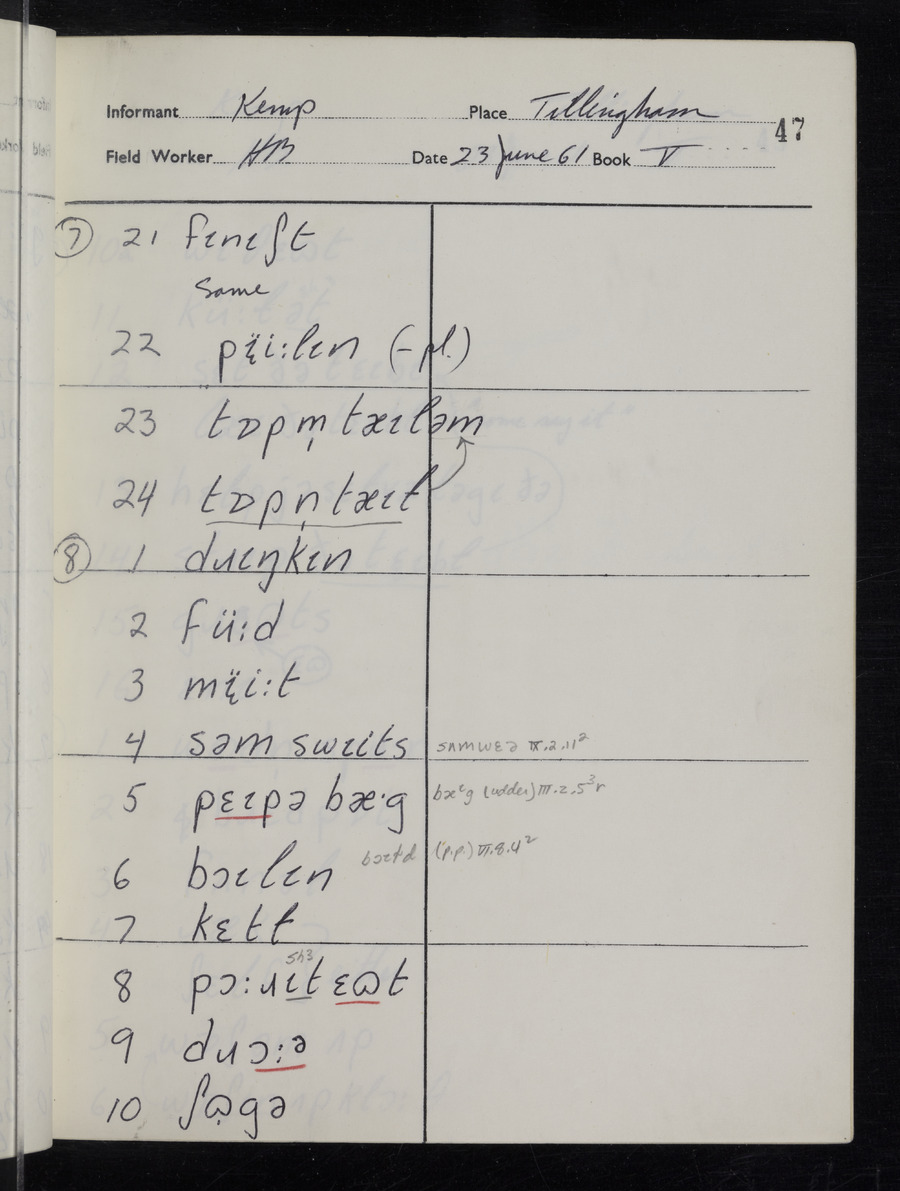 Informant Kemp Place Tillingham
47
Field Worker HB Date 23 June 61 Book V
⑦ 21 fɪnɪʃt
same
22 pï̞i:lɪn (-pl.)
23 tɒpm̩tæɪləm
24 tɒpn̩tæɪt
⑧ 1 dɹɪŋkɪn
2 füːd
3 mï̞i:t
4 səm swɪits sʌmwɛə IX.2.11²
5 pɛɪpə bæ·g bæᶜg (udder) III.2.5³r
6 bɔɪlɪn bɔɪɫd (p.p.) VI.8.4²
7 kɛtɫ
sh3
8 pɔ:ɹɪt ɛɷt
9 dɹɔ:ə
10 ʃɷ̣gə